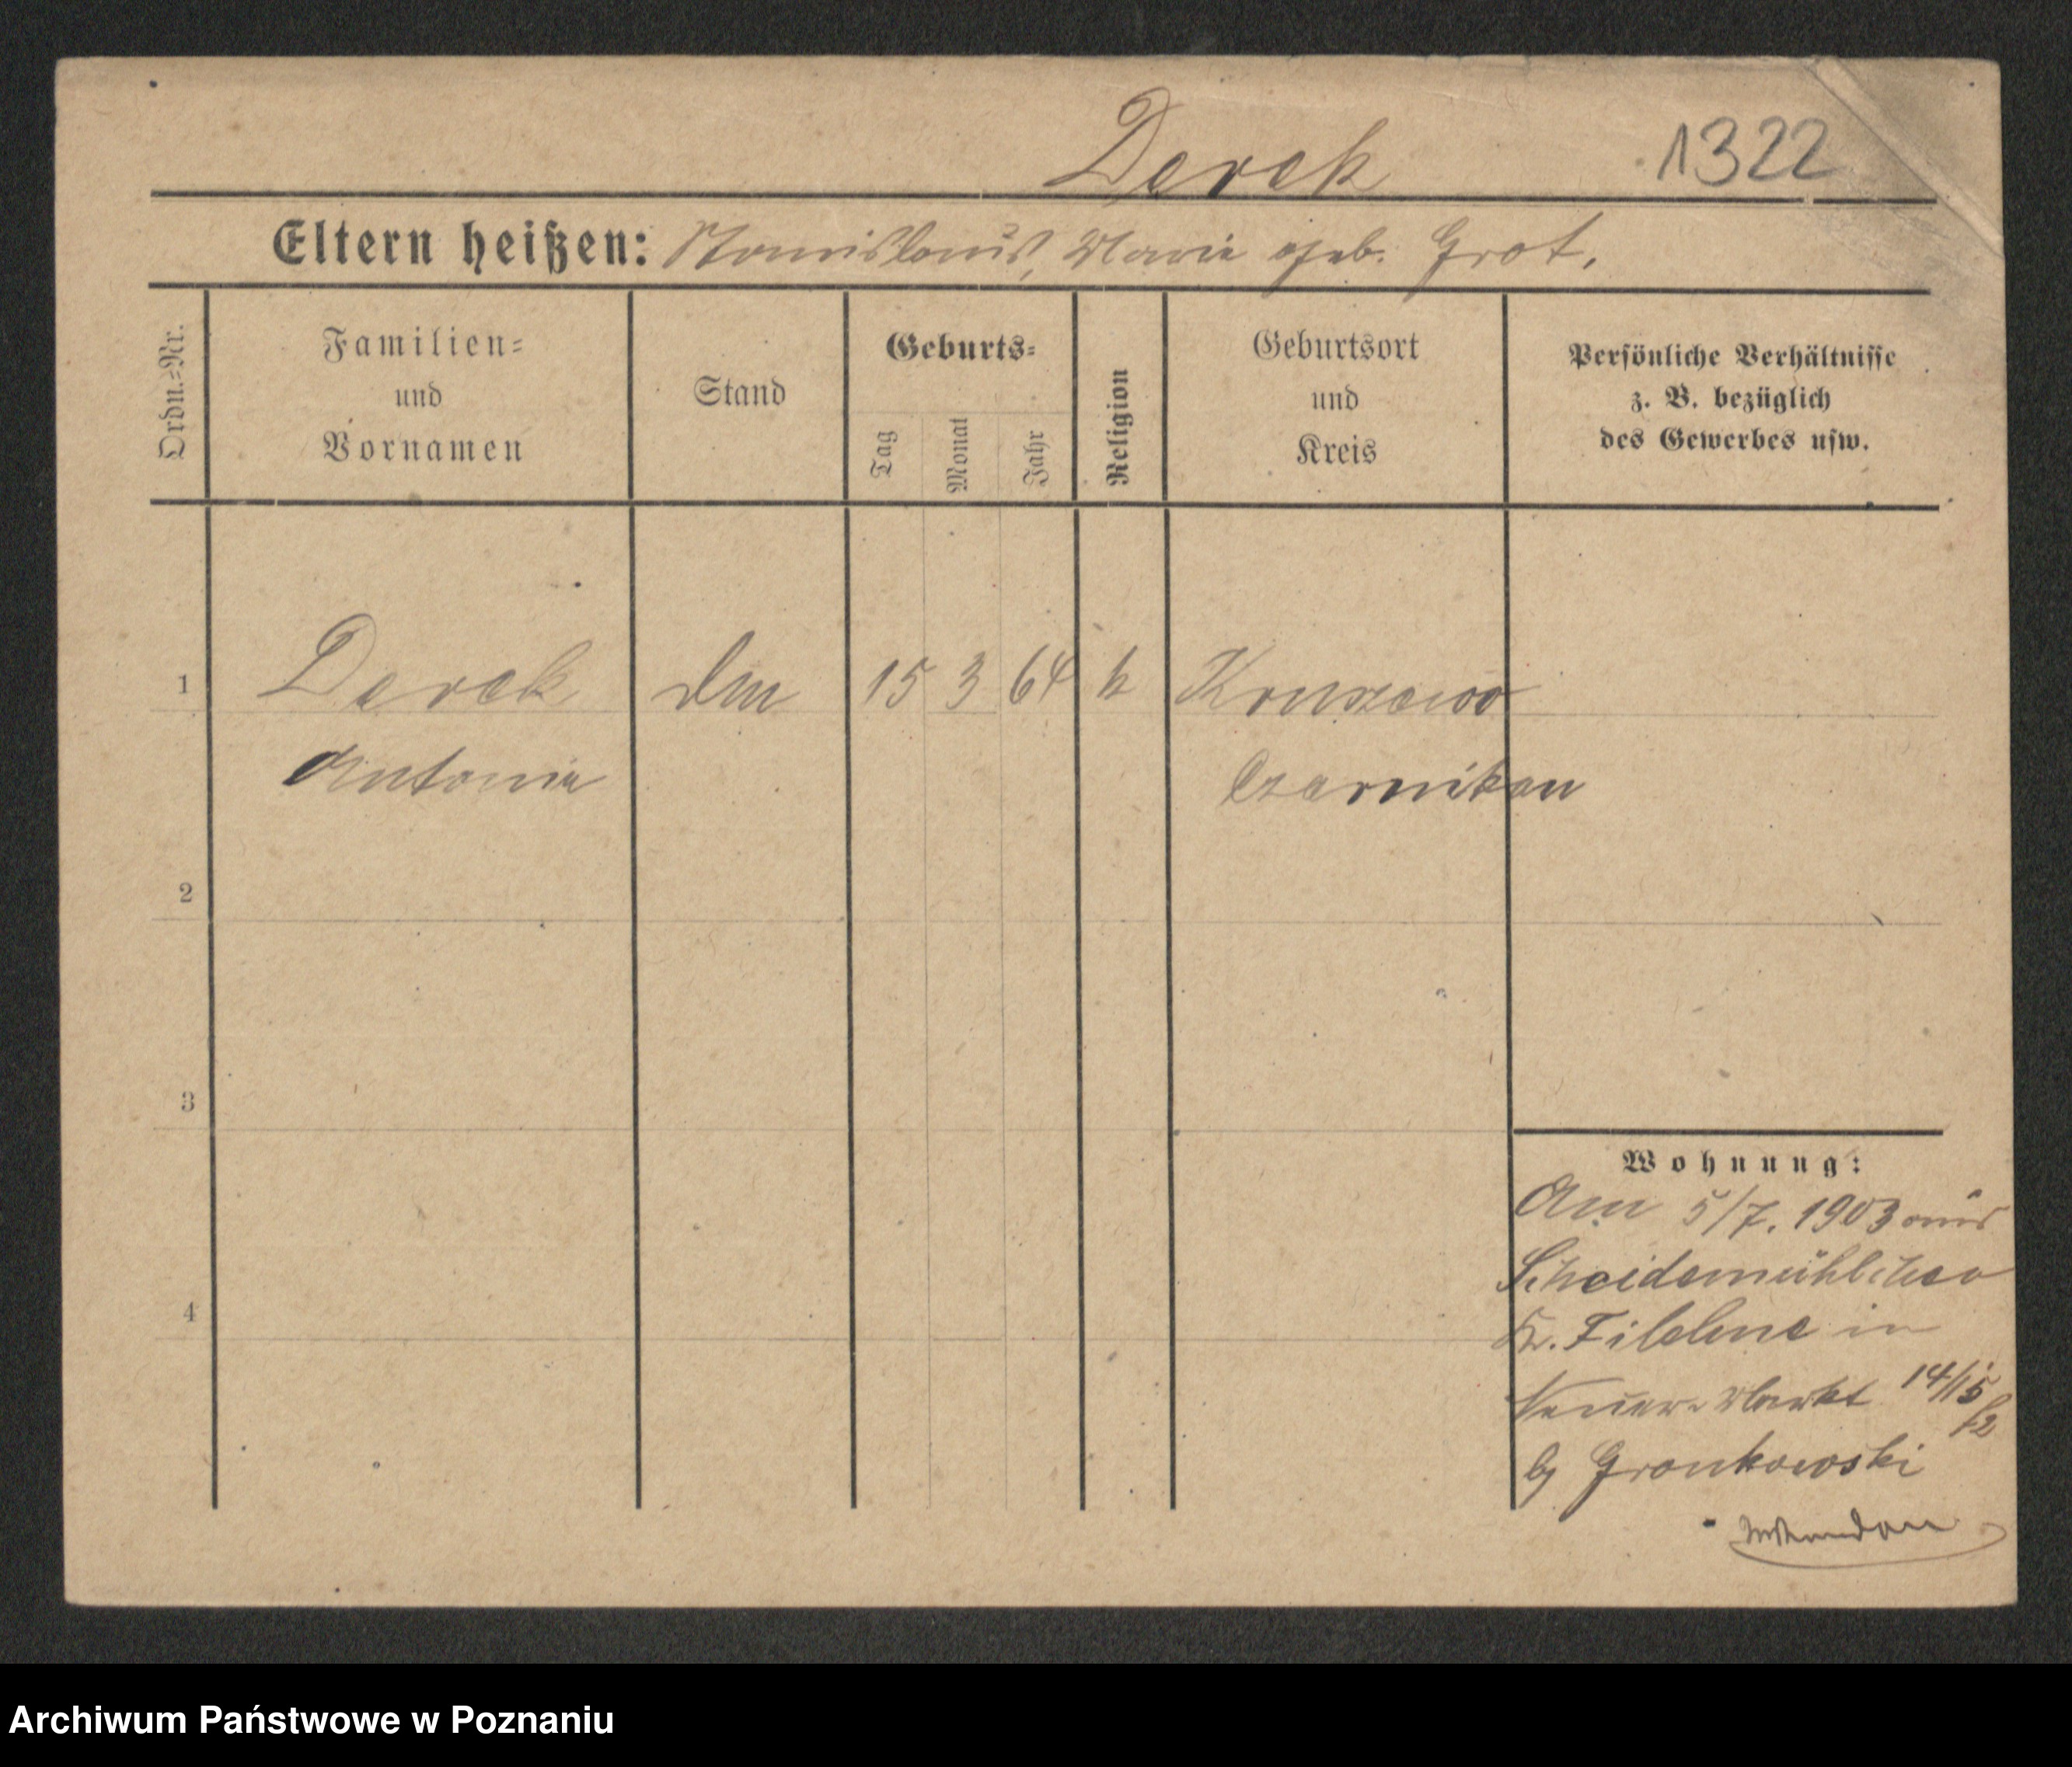 Derek
1322
Eltern heißen: Stanislaus, Marie geb. Grot.
Ordn.=Nr.
Familien=
und
Vornamen
Stand
Geburts=
Tag
Monat
Jahr
Religion
Geburtsort
und
Kreis
Persönliche Verhältnisse
z. B. bezüglich
des Gewerbes usw.
1 Derek 15 3 64 k Kruszewo
Antonie Czarnikau
2
3
4
Wohnung:
Am 5/7. 1903 aus
Kr. Filehne in
Neuer Markt 14/15
b/ Gronkowski
Archiwum Państwowe w Poznaniu